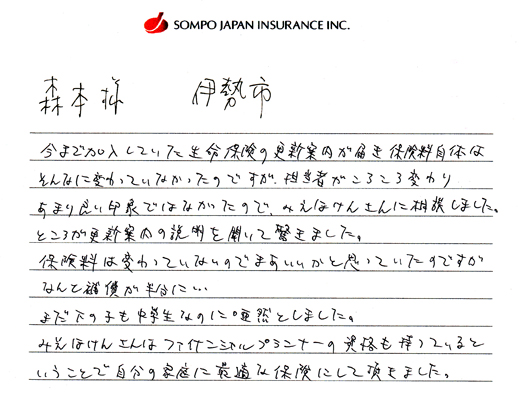 SOMPO JAPAN INSURANCE INC.
森本様 伊勢市
今まで加入していた生命保険の更新案内が届き保険料自体は
そんなに変わっていなかったのですが、担当者がころころ変わり
あまり良い印象ではなかったので、みえほけんさんに相談しました。
ところが更新案内の説明を聞いて驚きました。
保険料は変わっていないのでまあいいかと思っていたのですが
なんと補償が半分に…
まだ下の子も中学生なのに唖然としました。
みえほけんさんはファイナンシャルプランナーの資格も持っていると
いうことで自分の家庭に最適な保険にして頂きました。